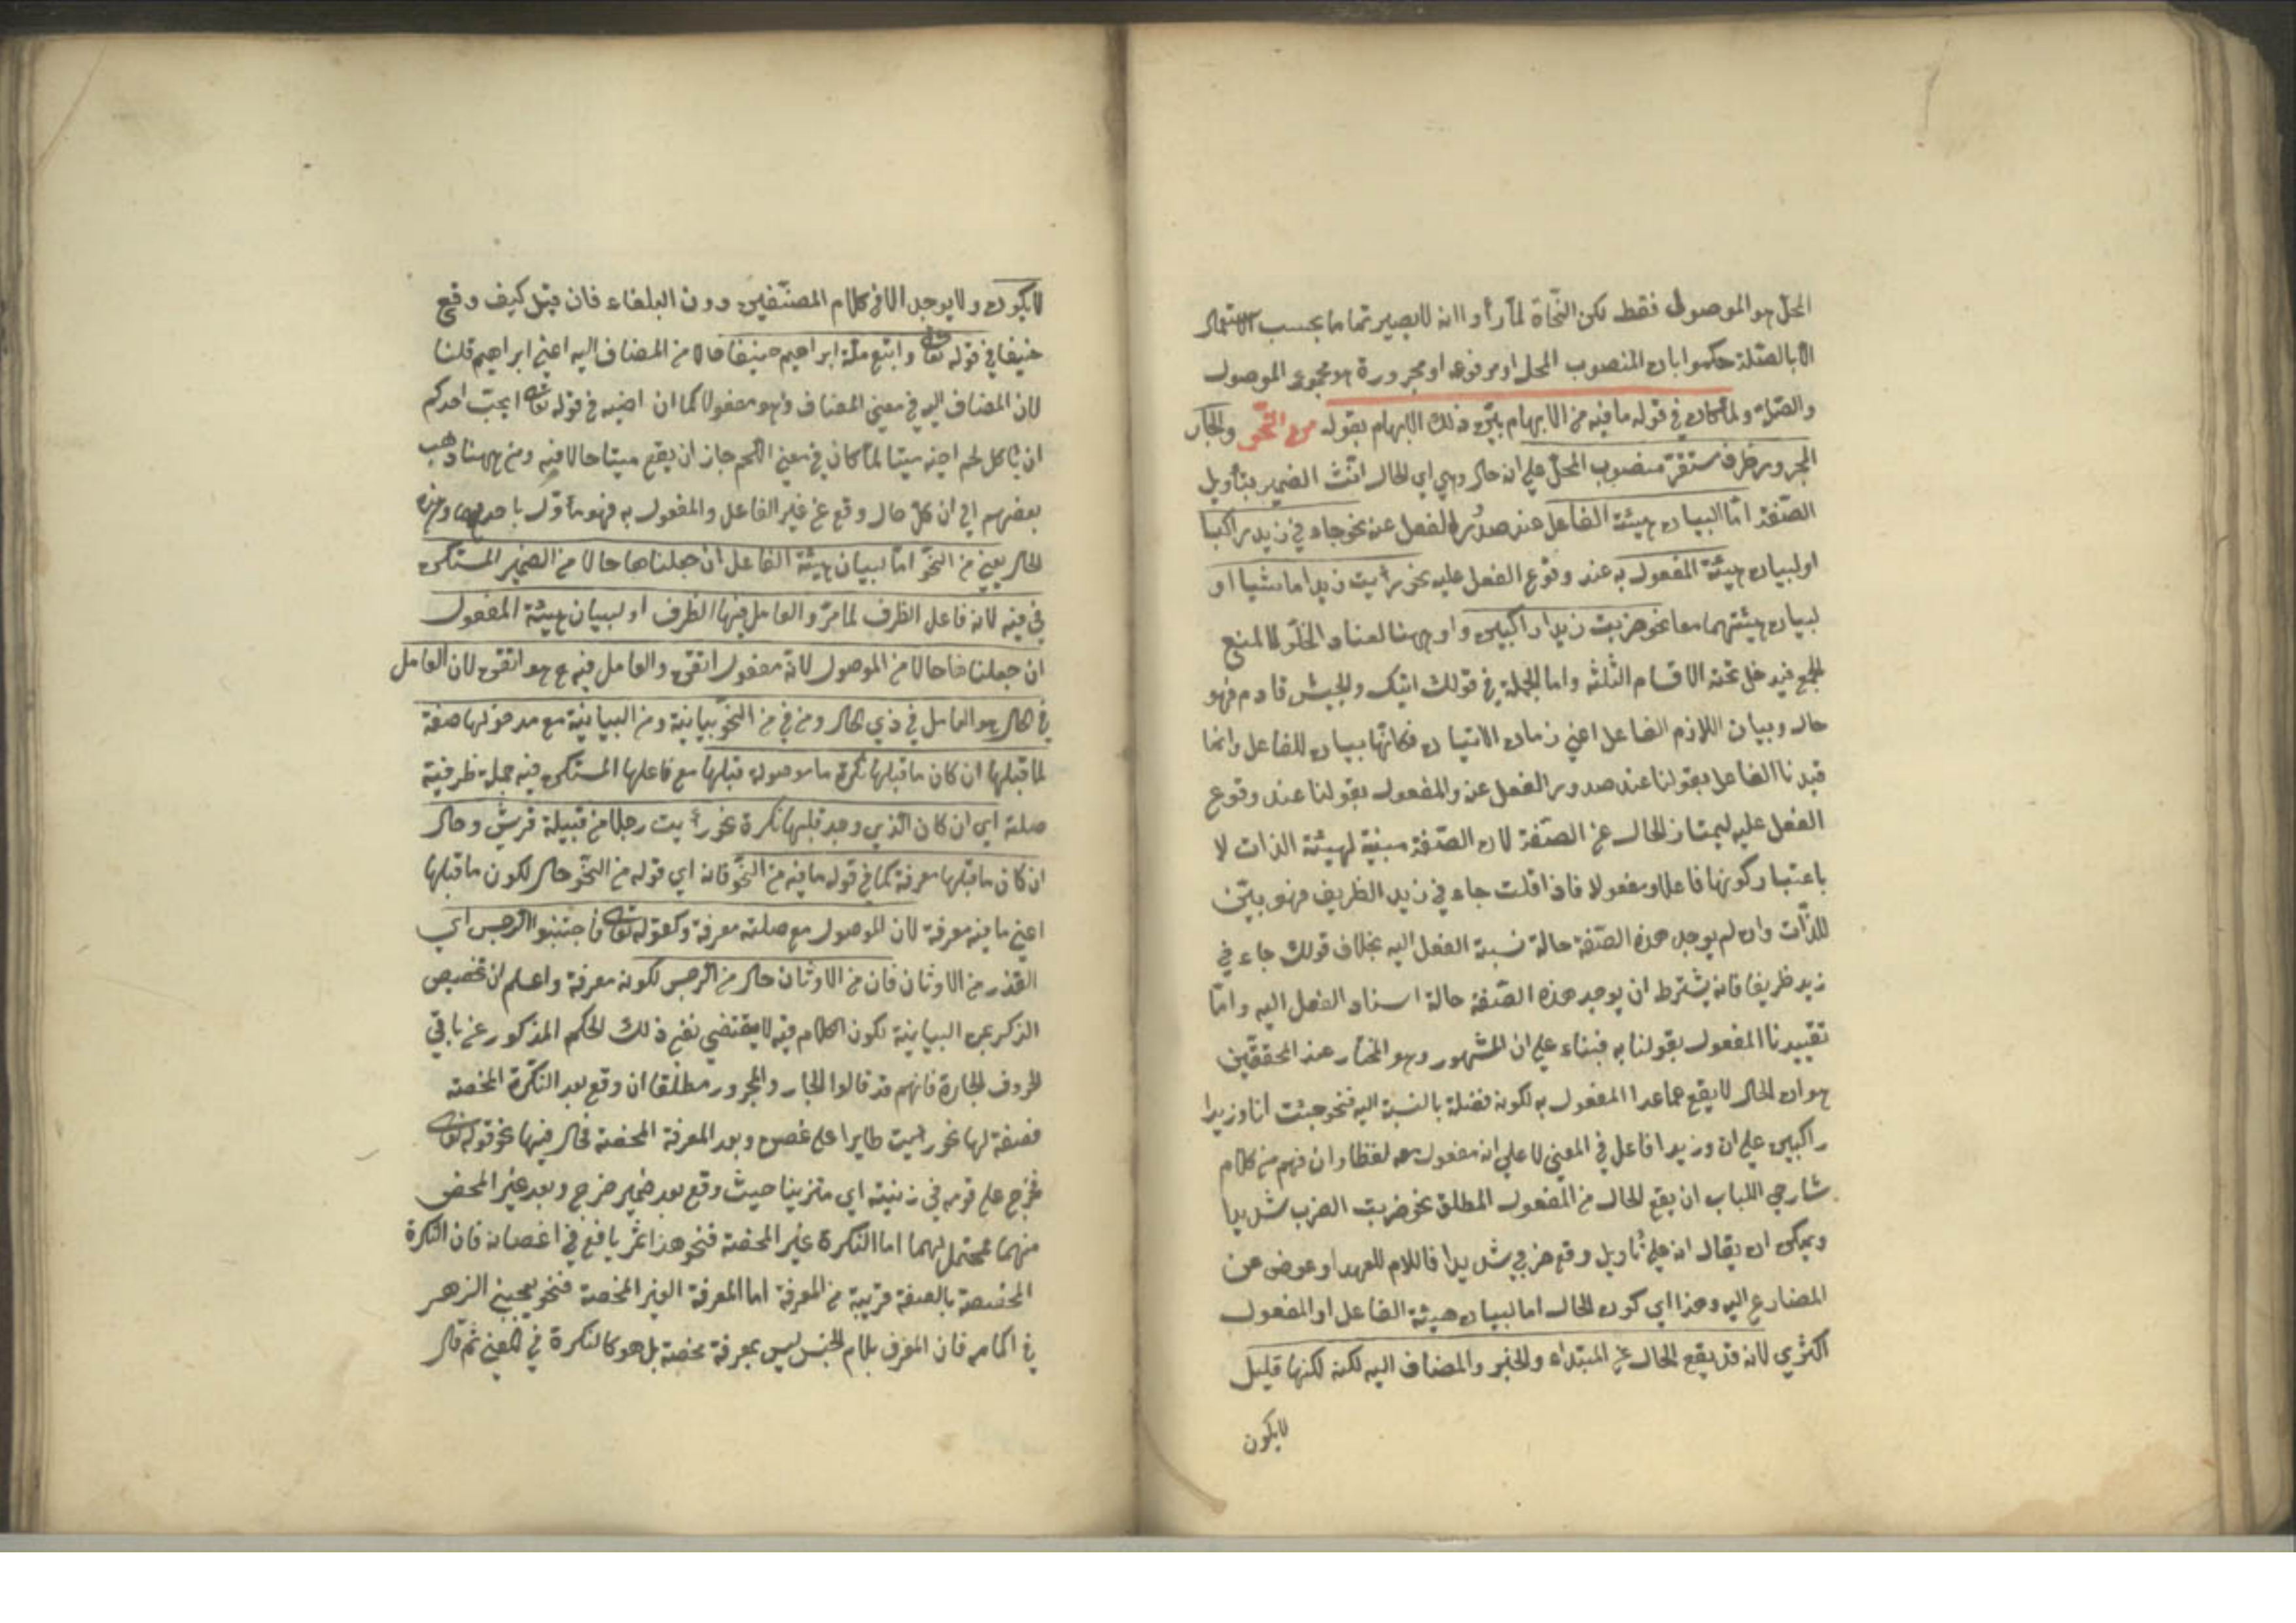 المحل هو الموصول فقط لكن النحاة لما رأوا انه لا يصير تماما بحسب الاستعمال
الا بالصلة حكموا بان المنصوب المحل او مرفوعه او مجروره هو مجموع الموصول
والصلة ولما كان في قوله ما فيه من الابهام بيّن ذلك الابهام بقوله من النحو والجار
المجرور ظرف مستقر منصوب المحل على انه حال وهي اي الحال انّث الضمير بتأويل
الصفة اما لبيان هيئة الفاعل عند صدور الفعل عنه نحو جاءني زيد راكبا
او لبيان هيئة المفعول به عند وقوع الفعل عليه نحو رأيت زيدا ماشيا او
لبيان هيئتهما معا نحو ضربت زيدا راكبين واو ههنا لعناد الخلو لا لمنع
الجمع فيدخل تحته الاقسام الثلثة واما الجملة في قولك اتيتك والجيش قادم فهو
حال وبيان اللازم الفاعل اعني زمان الاتيان فكانها بيان للفاعل وانما
قيدنا الفاعل بقولنا عند صدور الفعل عنه والمفعول بقولنا عند وقوع
الفعل عليه ليمتاز الحال عن الصفة لان الصفة مبنية لهيئة الذات لا
باعتبار كونها فاعلا ومفعولا فاذا قلت جاءني زيد الظريف فهو يبيّن
للذات وان لم يوجد هذه الصفة حالة نسبة الفعل اليه بخلاف قولك جاءني
زيد ظريفا فانه يشترط ان يوجد هذه الصفة حالة اسناد الفعل اليه واما
تقييدنا المفعول بقولنا به فبناء على ان المشهور وهو المختار عند المحققين
هو ان الحال لا يقع عما عدا المفعول به لكونه فضلة بالنسبة اليه فنحو جئت انا وزيدا
راكبين على ان وزيدا فاعل في المعنى لا على انه مفعول معه لفظا وان فهم من كلام
شارحي اللباب ان يقع الحال من المفعول المطلق نحو ضربت الضرب شديدا
ويمكن ان يقال انه على تأويل وقع ضربي شديدا فاللام للعهد او عوض عن
المضارع اليه وهذا اي كون الحال اما لبيان هيئة الفاعل او المفعول
اكثري لانه قد يقع الحال عن المبتداء والخبر والمضاف اليه لكنه لكنها قليل
لا يكون
لا يكون ولا يوجد الا في كلام المصنفين دون البلغاء فان قيل كيف وقع
حنيفا في قوله تعالى واتبع ملة ابراهيم حنيفا حالا من المضاف اليه اعني ابراهيم قلنا
لان المضاف اليه في معنى المضاف وهو مفعولا كما ان اخيه في قوله تعالى ايحب احدكم
ان يأكل لحم اخيه ميتا لما كان في معنى اللحم جاز ان يقع ميتا حالا فيه ومن ههنا ذهب
بعضهم الى ان كل حال وقع عن غير الفاعل والمفعول به فهو مأوّل باحدهما وهذه
الحال يعني من النحو اما لبيان هيئة الفاعل ان جعلناها حالا من الضمير المستكن
في فيه لانه فاعل الظرف لما مرّ والعامل فيها الظرف او لبيان هيئة المفعول
ان جعلناها حالا من الموصول لانه مفعول اتقن والعامل فيه ح هو اتقن لان العامل
في الحال هو العامل في ذي الحال ومن في من النحو بيانية ومن البيانية مع مدخولها صفة
لما قبلها ان كان ما قبلها نكرة ما موصولة قبلها مع فاعلها المستكن فيه جملة ظرفية
صلته اي ان كان الذي وجد قبلها نكرة نحو رأيت رجلا من قبيلة قريش وحال
ان كان ما قبلها معرفة كما في قوله ما فيه من النحو فانه اي قوله من النحو حال لكون ما قبلها
اعني ما فيه معرفة لان الموصول مع صلته معرفة وكقوله تعالى فاجتنبوا الرجس اي
القذر من الاوثان فان من الاوثان حال من الرجس لكونه معرفة واعلم ان تخصيص
الذكر بمن البيانية لكون الكلام فيه لا يقتضي نفي ذلك الحكم المذكور عن باقي
الحروف الجارة فانهم قد قالوا الجار والمجرور مطلقا ان وقع بعد النكرة المحضة
فصفة لها نحو رأيت طايرا على غصن وبعد المعرفة المحضة فحال فيها نحو قوله تعالى
فخرج على قومه في زينته اي متزينا حيث وقع بعد ضمير خرج وبعد غير المحض
منهما محتمل لهما اما النكرة غير المحضة فنحو هذا ثمر يافع في اغصانه فان النكرة
المخصصة بالصفة قريبة من المعرفة اما المعرفة الغير المحضة فنحو يعجبني الزهر
في اكمامه فان المعرف بلام الجنس ليس بمعرفة محضة بل هو كالنكرة في المعنى ثم قال